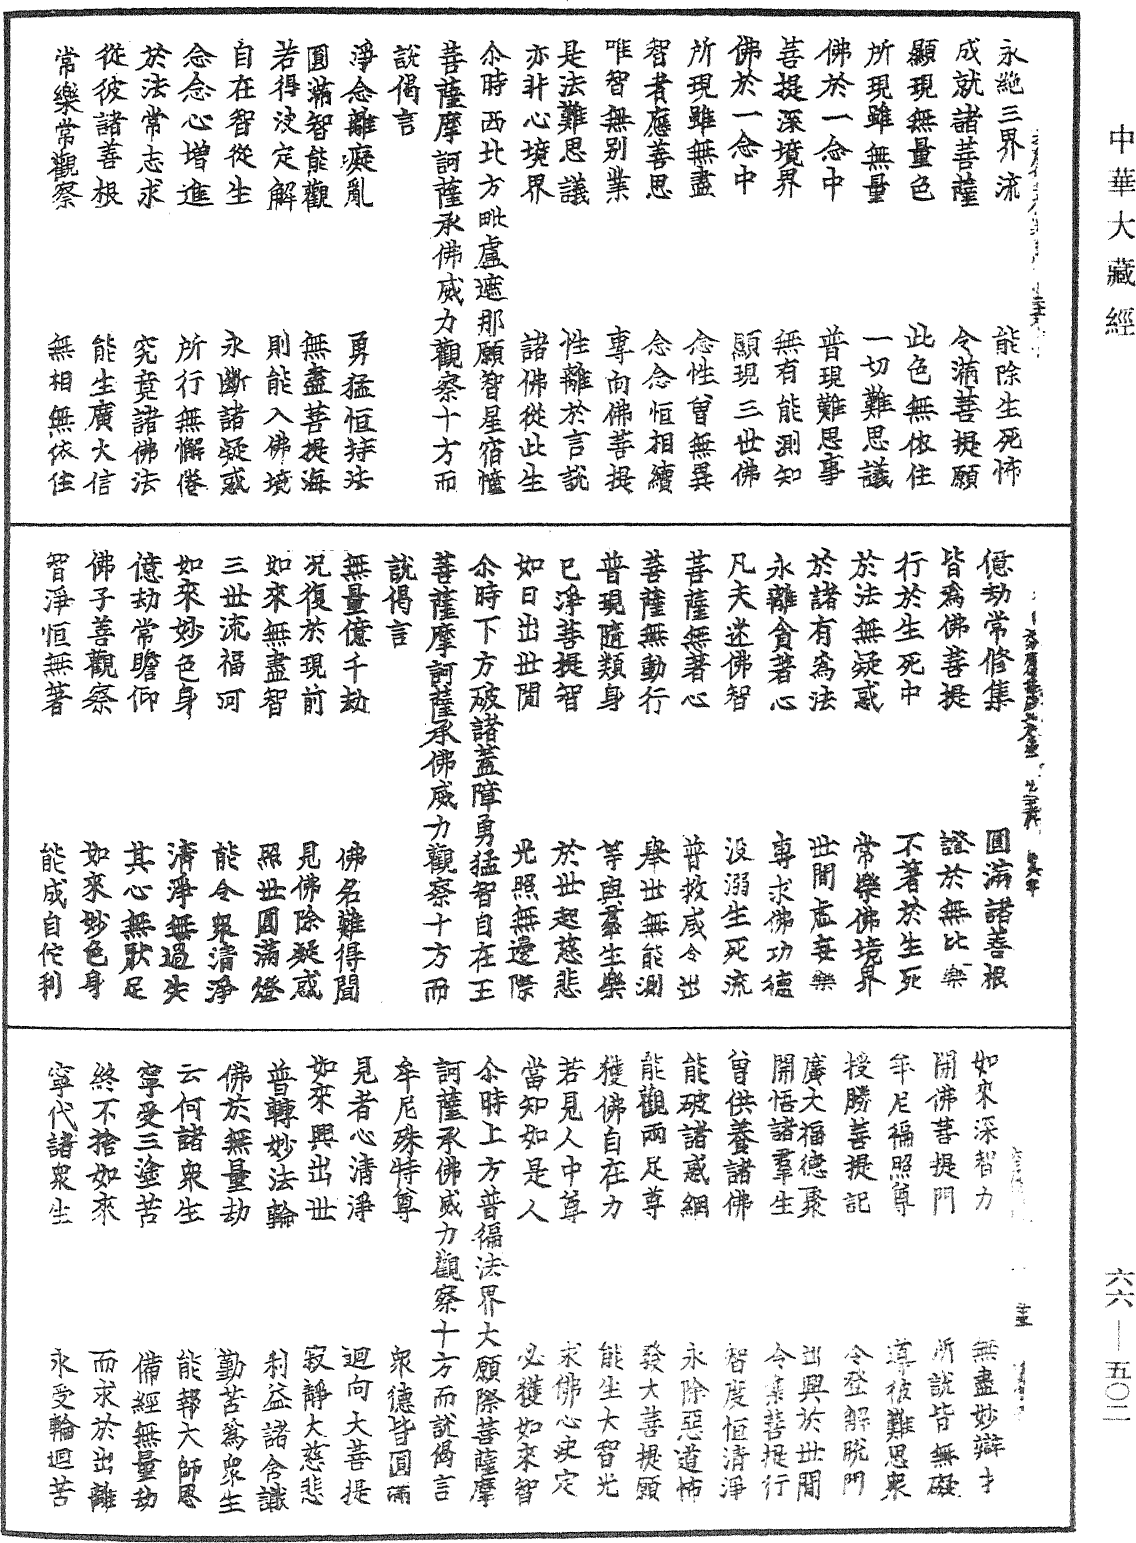 中華大藏經
永絶三界流　能除生死怖
成就諸菩薩　令滿菩提願
顯現無量色　此色無依住
所現雖無量　一切難思議
佛於一念中　普現難思事
菩提深境界　無有能測知
佛於一念中　顯現三世佛
所現雖無盡　念性曾無異
智者應善思　念念恒相續
唯智無别業　專向佛菩提
是法難思議　性離於言說
亦非心境界　諸佛從此生
尒時西北方毗盧遮那願智星宿幢
菩薩摩訶薩承佛威力觀察十方而
說偈言
淨念離癡亂　勇猛恒持法
圓滿智能觀　無盡菩提海
若得決定解　則能入佛境
自在智從生　永斷諸疑惑
念念心增進　所行無懈倦
於法常志求　究竟諸佛法
從彼諸善根　能生廣大信
常樂常觀察　無相無依住
億劫常修集　圓滿諸善根
皆爲佛菩提　證於無比樂
行於生死中　不著於生死
於法無疑惑　常樂佛境界
於諸有爲法　世間虛妄樂
永離貪著心　專求佛功德
凡夫迷佛智　没溺生死流
菩薩無著心　普救咸令出
菩薩無動行　舉世無能測
普現隨類身　等與羣生樂
已淨菩提智　於世起慈悲
如日出世間　光照無邊際
尒時下方破諸蓋障勇猛智自在王
菩薩摩訶薩承佛威力觀察十方而
說偈言
無量億千劫　佛名難得聞
况復於現前　見佛除疑惑
如來無盡智　照世圓滿燈
三世流福河　能令衆清淨
如來妙色身　清淨無過失
億劫常瞻仰　其心無猒足
佛子善觀察　如來妙色身
智淨恒無著　能成自佗利
如來深智力　無盡妙辯才
開佛菩提門　所說皆無礙
牟尼徧照尊　導彼難思衆
授勝菩提記　令登解脫門
廣大福德聚　出興於世間
開悟諸羣生　令集菩提行
曾供養諸佛　智度恒清淨
能破諸惑網　永除惡道怖
能觀兩足尊　發大菩提願
獲佛自在力　能生大智光
若見人中尊　求佛心決定
當知如是人　必獲如來智
尒時上方普徧法界大願際菩薩摩
訶薩承佛威力觀察十方而說偈言
牟尼殊特尊　衆德皆圓滿
見者心清淨　迴向大菩提
如來興出世　寂靜大慈悲
普轉妙法輪　利益諸含識
佛於無量劫　勤苦爲衆生
云何諸衆生　能報大師恩
寧受三塗苦　備經無量劫
終不捨如來　而求於出離
寧代諸衆生　永受輪迴苦
六六—五〇二